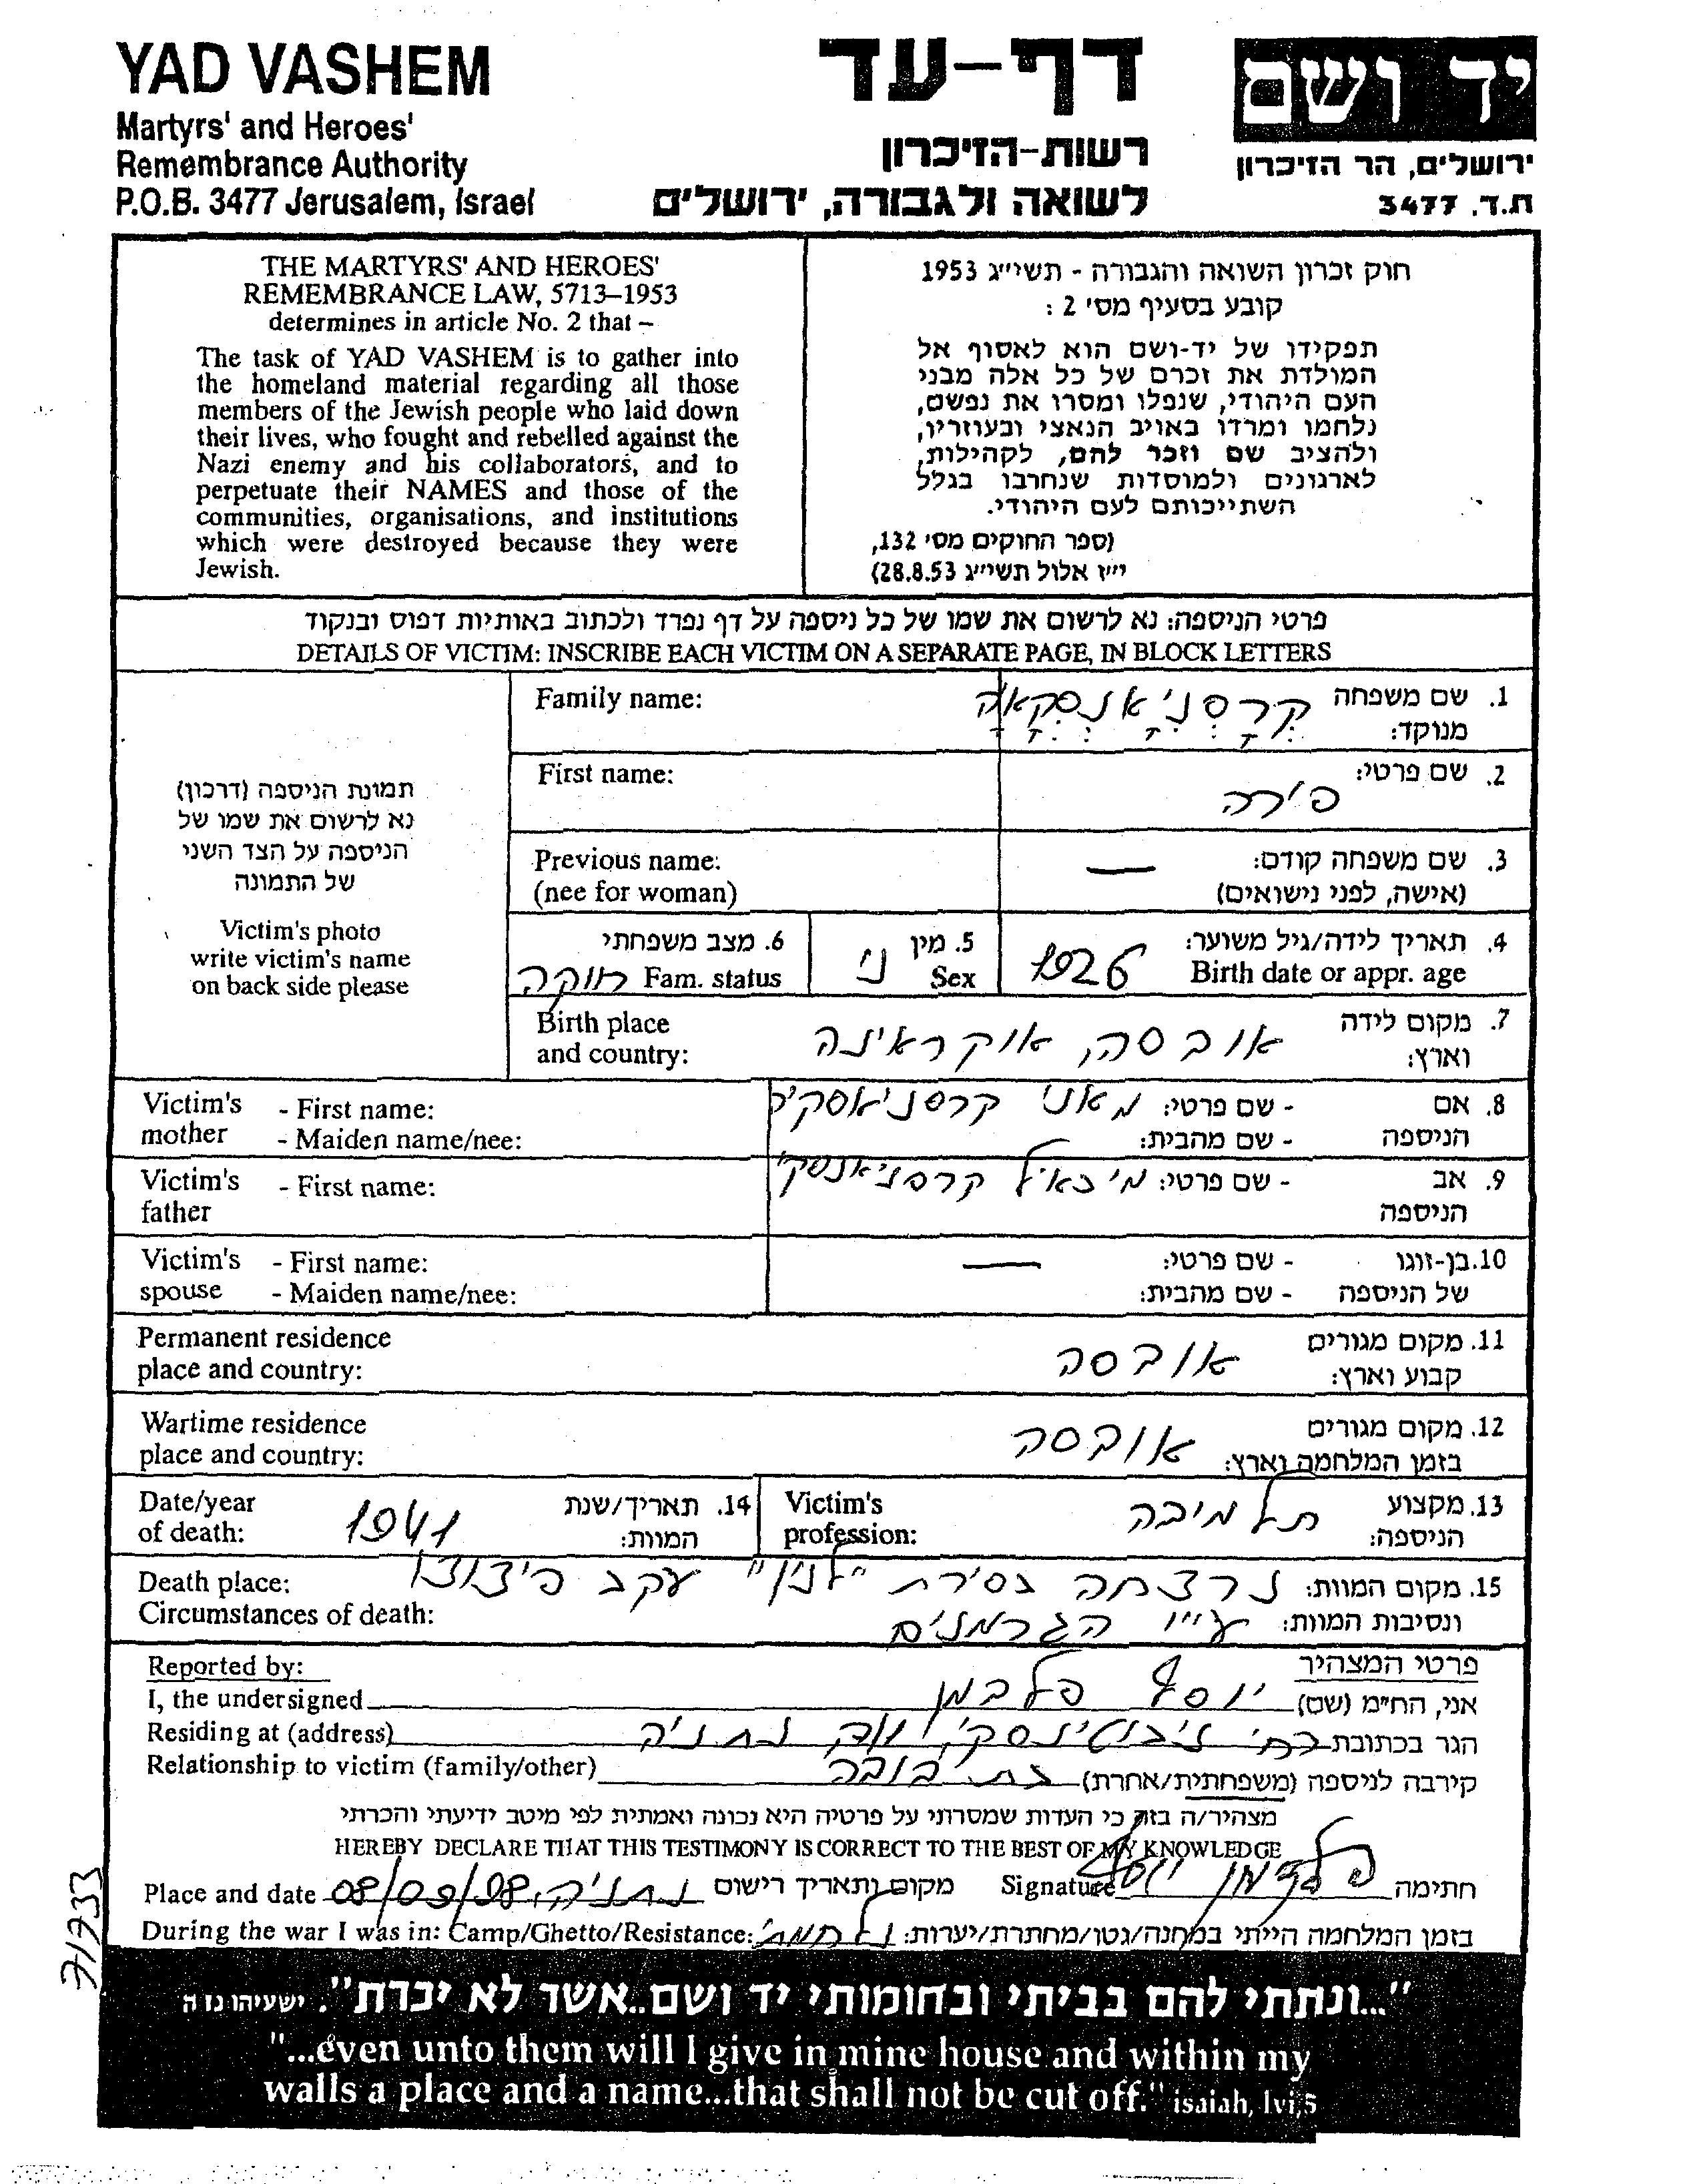 YAD VASHEM
Martyrs' and Heroes'
Remembrance Authority
P.O.B. 3477 Jerusalem, Israel
דף-עד
רשות-הזיכרון
לשואה ולגבורה, ירושלים
יד ושם
ירושלים, הר הזיכרון
ת.ד. 3477
THE MARTYRS' AND HEROES'
REMEMBRANCE LAW, 5713–1953
determines in article No. 2 that –
The task of YAD VASHEM is to gather into
the homeland material regarding all those
members of the Jewish people who laid down
their lives, who fought and rebelled against the
Nazi enemy and his collaborators, and to
perpetuate their NAMES and those of the
communities, organisations, and institutions
which were destroyed because they were
Jewish.
חוק זכרון השואה והגבורה - תשי״ג 1953
קובע בסעיף מס׳ 2 :
תפקידו של יד-ושם הוא לאסוף אל
המולדת את זכרם של כל אלה מבני
העם היהודי, שנפלו ומסרו את נפשם,
נלחמו ומרדו באויב הנאצי ובעוזריו,
ולהציב שם וזכר להם, לקהילות,
לארגונים ולמוסדות שנחרבו בגלל
השתייכותם לעם היהודי.
(ספר החוקים מס׳ 132,
י״ז אלול תשי״ג 28.8.53)
פרטי הניספה: נא לרשום את שמו של כל ניספה על דף נפרד ולכתוב באותיות דפוס ובנקוד
DETAILS OF VICTIM: INSCRIBE EACH VICTIM ON A SEPARATE PAGE, IN BLOCK LETTERS
תמונת הניספה (דרכון)
נא לרשום את שמו של
הניספה על הצד השני
של התמונה
Victim's photo
write victim's name
on back side please
Family name: 1. שם משפחה
מנוקד:
First name: פירה 2. שם פרטי:
Previous name: — 3. שם משפחה קודם:
(nee for woman) (אישה, לפני נישואים)
6. מצב משפחתי 5. מין 4. תאריך לידה/גיל משוער:
רווקה Fam. status נ׳ Sex 1926 Birth date or appr. age
Birth place אודסה, אוקראינה 7. מקום לידה
and country: וארץ:
Victim's - First name: מאני - שם פרטי: 8. אם
mother - Maiden name/nee: - שם מהבית: הניספה
Victim's - First name: מיכאיל קרסניאנסקי - שם פרטי: 9. אב
father הניספה
Victim's - First name: — - שם פרטי: 10. בן-זוגו
spouse - Maiden name/nee: - שם מהבית: של הניספה
Permanent residence אודסה 11. מקום מגורים
place and country: קבוע וארץ:
Wartime residence אודסה 12. מקום מגורים
place and country: בזמן המלחמה וארץ:
Date/year 1941 14. תאריך/שנת Victim's תלמידה 13. מקצוע
of death: המוות: profession: הניספה:
Death place: נרצחה בסירת "לנין" עקב פיצוצו 15. מקום המוות:
Circumstances of death: ע״י הגרמנים ונסיבות המוות:
Reported by: פרטי המצהיר
I, the undersigned יוסף פלדמן אני, הח״מ (שם)
Residing at (address) נתניה הגר בכתובת
Relationship to victim (family/other) בת דודה קירבה לניספה (משפחתית/אחרת)
מצהיר/ה בזה כי העדות שמסרתי על פרטיה היא נכונה ואמתית לפי מיטב ידיעתי והכרתי
HEREBY DECLARE THAT THIS TESTIMONY IS CORRECT TO THE BEST OF MY KNOWLEDGE
Place and date 08/09/98, נתניה מקום ותאריך רישום Signature פלדמן יוסף חתימה
During the war I was in: Camp/Ghetto/Resistance: נלחמתי בזמן המלחמה הייתי במחנה/גטו/מחתרת/יערות:
"...ונתתי להם בביתי ובחומותי יד ושם..אשר לא יכרת". ישעיהו נו ה
"...even unto them will I give in mine house and within my
walls a place and a name...that shall not be cut off." isaiah, lvi,5